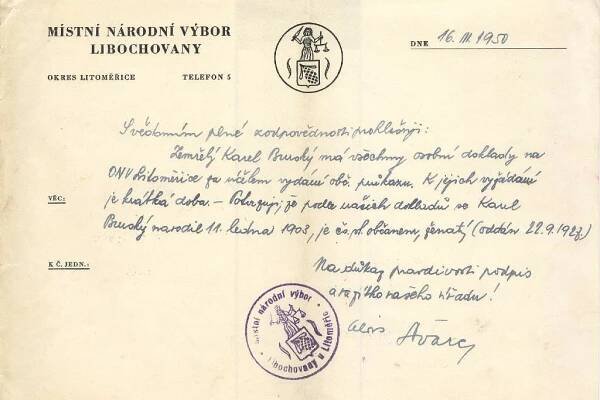 MÍSTNÍ NÁRODNÍ VÝBOR
LIBOCHOVANY
OKRES LITOMĚŘICE TELEFON 5
DNE 16. III. 1950
S vědomím plné zodpovědnosti prohlašuji:
Zemřelý Karel Burský má všechny osobní doklady na
ONV Litoměřice za účelem vydání obč. průkazu. K jejich vyžádání
VĚC:
je krátká doba. – Potvrzuji, že podle našich dokladů se Karel
Burský narodil 11. ledna 1903, je čs. st. občanem, ženatý (oddán 22.9.1927.)
K Č. JEDN.:
Na důkaz pravdivosti podpis
a razítko našeho úřadu!
Alois Švarc
Místní národní výbor
Libochovany u Litoměřic